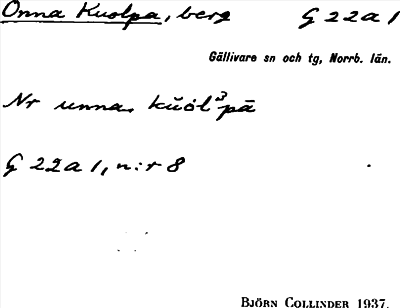 Onna Kuolpa, berg G 22a1
Gällivare sn och tg, Norrb. län.
Nr unna. kŭòl³pā
G 22a1, n:r 8
BJÖRN COLLINDER 1937.